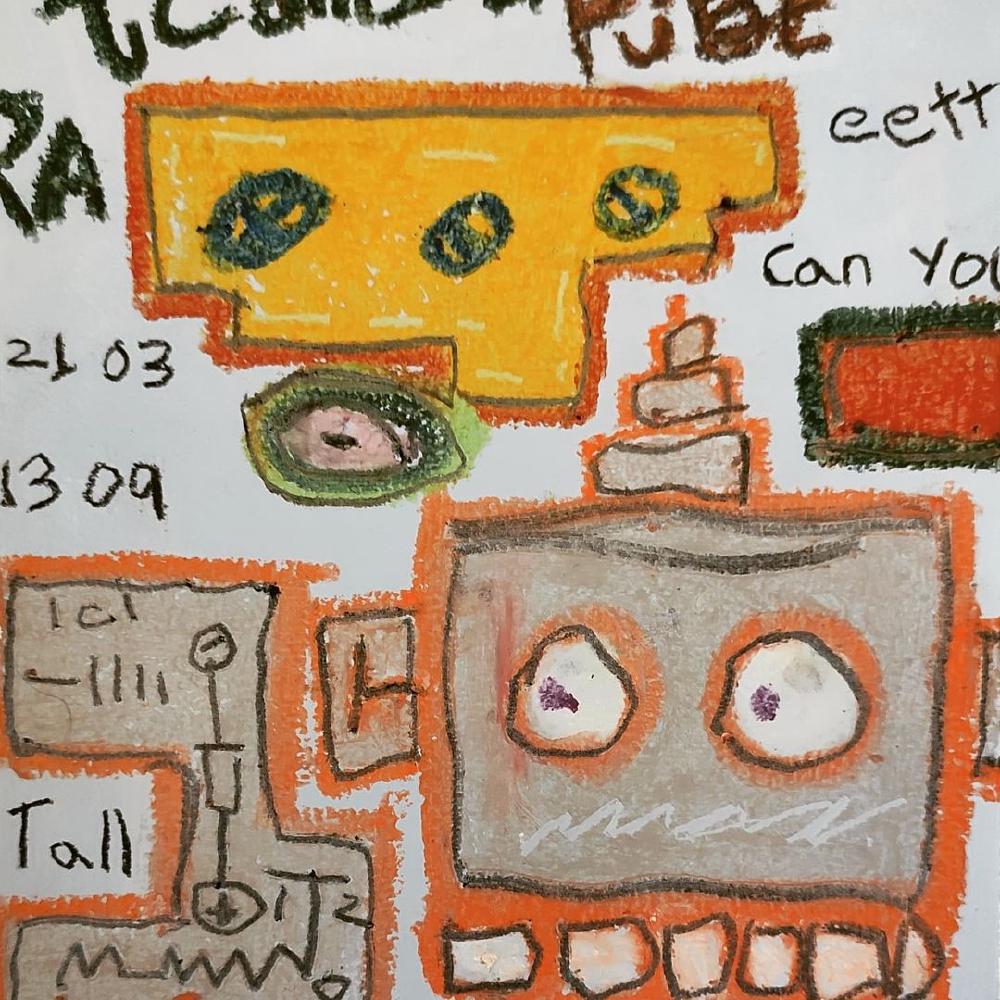 PUBE
RA
eett
Can You
21 03
13 09
Tall
2